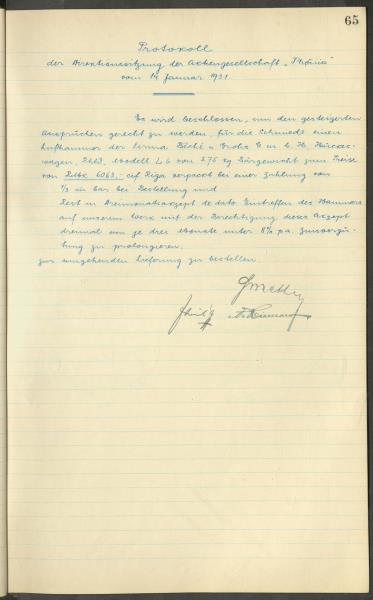 65
Protokoll
der Direktionssitzung der Aktiengesellschaft „Phönix"
vom 14 Januar 1931
Es wird beschlossen, um den gesteigerten
Ansprüchen gerecht zu werden, für die Schmiede einen
Lufthammer der Firma Bêché u. Grohs G. m. b. H., Hückes-
wagen, Modell L 6 von 275 kg Bärgewicht zum Preise
von RMk 6063,- cif Riga verpackt bei einer Zahlung von
1/3 in bar bei Bestellung und
Rest in Dreimonatsakzept de dato Eintreffen des Hammers
auf unserem Werk mit der Berechtigung, dieses Akzept
dreimal um je drei Monate unter 8% p.a. Zinsvergü-
tung zu prolongieren.
zur umgehenden Lieferung zu bestellen.